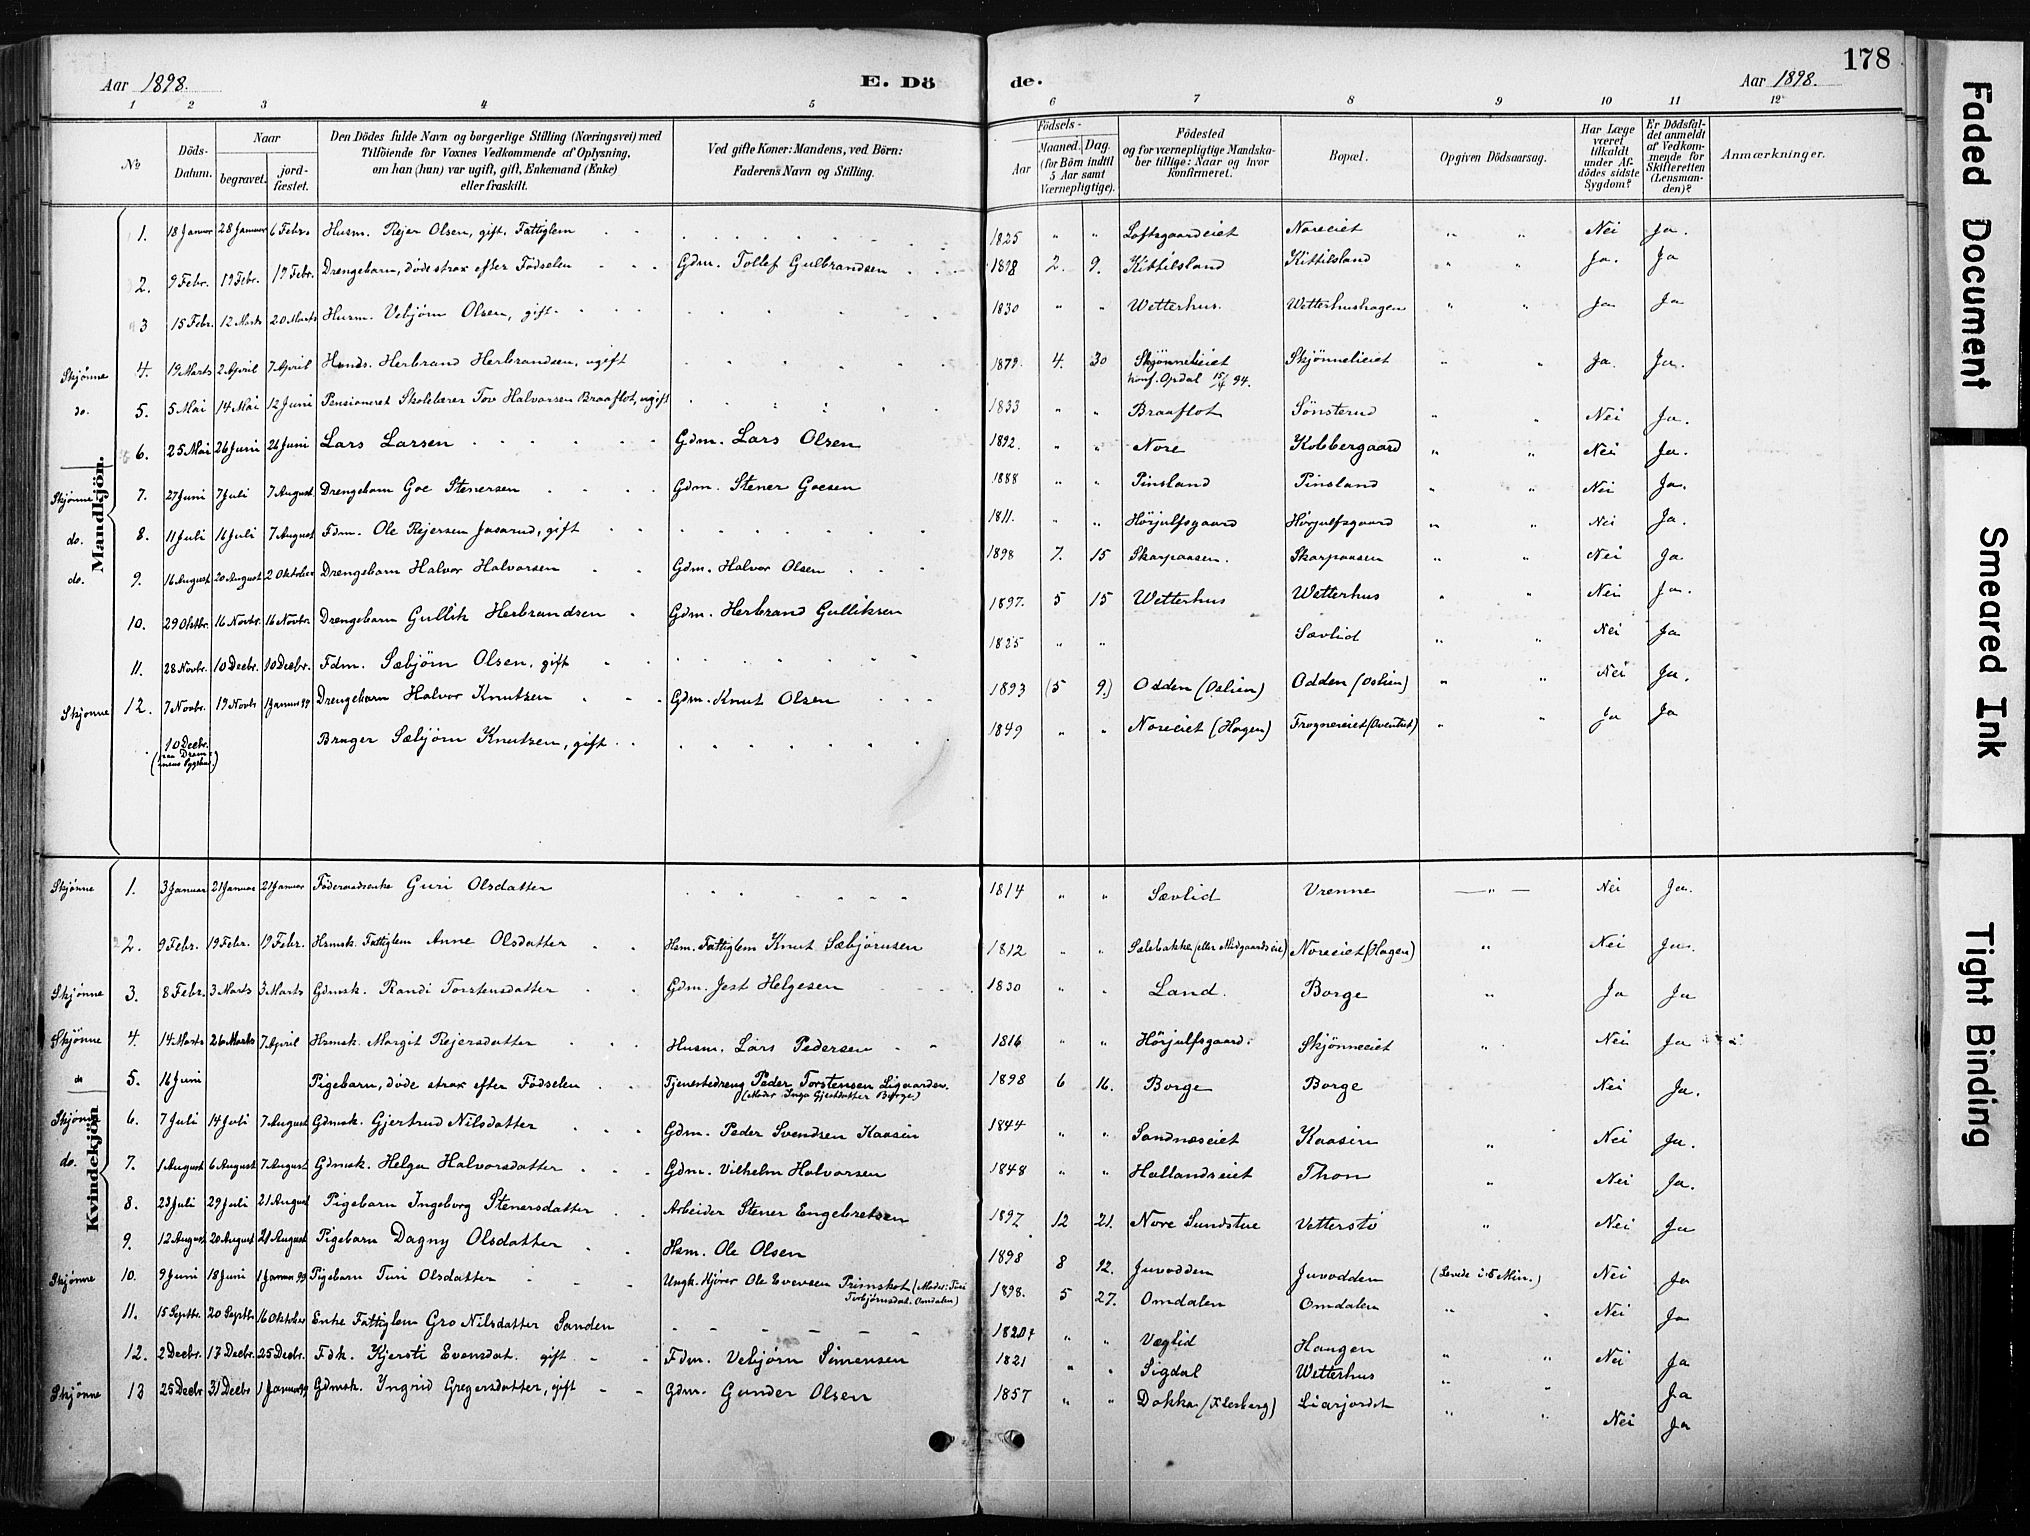 178
Aar 1898. E. Dö de. Aar 1898.
1 2 3 4 5 6 7 8 9 10 11 12
No
Döds-Datum.
Naar
begravet.
jordfæstet.
Den Dödes fulde Navn og borgerlige Stilling (Næringsvei) med
Tilföiende for Voxnes Vedkommende af Oplysning,
om han (hun) var ugift, gift, Enkemand (Enke)
eller fraskilt.
Ved gifte Koner: Mandens, ved Börn:
Faderens Navn og Stilling.
Födsels-
Aar
Maaned. Dag.
(for Börn indtil
5 Aar samt
Værnepligtige).
Födested
og for værnepligtige Mandskaber tillige: Naar og hvor
konfirmeret.
Bopæl.
Opgiven Dödsaarsag.
Har Læge været tilkaldt under Afdödes sidste Sygdom?
Er Dödsfaldet anmeldt af Vedkommende for Skifteretten (Lensmanden)?
Anmærkninger.
Mandkjön.
1. 18 Januar 28 Januar 6 Febr. Husm. Rejer Olsen, gift, Fattiglem 1825 " " Loftsgaardeiet Noreeiet " " Nei Ja.
2. 9 Febr. 19 Febr. 19 Febr. Drengebarn, døde strax efter Fødselen Gdm. Tollef Gulbrandsen 1898 2. 9. Kittilsland Kittilsland " " Ja. Ja
3 15 Febr. 12 Marts 20 Marts Husm. Vebjørn Olsen, gift 1830 " " Wetterhus. Wetterhushagen " " Ja Ja
Skjønne 4. 19 Marts 2 April 7 April Herbrand Herbrandsen, ugift 1879 4. 30 Skjønneeiet Skjønneeiet " " Ja. Ja.
konf. Opdal 15/4 94.
do. 5. 5 Mai 14 Mai 12 Juni Pensioneret Skolelærer Tov Halvorsen Braaflot, ugift 1833 " " Braaflot Sønsterud " " Nei Ja.
6. 25 Mai 26 Juni 26 Juni Lars Larsen Gdm. Lars Olsen 1892. " " Nore Kobbergaard " " Nei Ja.
Skjønne 7. 27 Juni 7 Juli 7 August Drengebarn Goe Stenersen Gdm. Stener Goesen 1888 " " Pinsland Pinsland " " Nei Ja.
do. 8. 11 Juli 16 Juli 7 August Fdm. Ole Rejersen Jasarud, gift 1811. " " Hörjulfsgaard Hörjulfsgaard " " Nei Ja.
do. 9. 16 August 20 August 2 Oktober Drengebarn Halvor Halvorsen Gdm. Halvor Olsen 1898 7. 15 Skarpaasen. Skarpaasen " " Nei Ja
10. 29 Oktbr. 16 Novbr. 16 Novbr. Drengebarn Gullik Herbrandsen Gdm. Herbrand Gulliksen 1897. 5 15 Wetterhus Wetterhus " " Nei Ja.
11. 28 Novbr. 10 Decbr. 10 Decbr. Fdm. Sæbjørn Olsen, gift 1825 " " Sævlid " " Nei Ja
Skjønne 12. 7 Novbr. 19 Novbr 1 Januar 99 Drengebarn Halvor Knutsen Gdm. Knut Olsen 1893 (5 9.) Odden (Oslien) Odden (Oslien) " " Nei Ja.
10 Decbr. Bruger Sæbjørn Knutsen, gift 1849 " " Noreeiet (Hagen) Frogneeiet " " Ja Ja
Kvindekjön
Skjønne 1. 3 Januar 21 Januar 21 Januar Føderaadsenke Guri Olsdatter 1814 " " Sævlid Vrenne " Nei Ja.
2. 9 Febr. 19 Febr. 19 Febr. Hsmsk. Fattiglem Anne Olsdatter Hsm. Fattiglem Knut Sæbjørnsen 1812 " " Noreeiet (Hagen) " Nei Ja.
Skjønne 3. 8 Febr. 3 Marts 3 Marts Gdmsk. Randi Torstensdatter Gdm. Jest Helgesen 1830 " " Land. Borge " Ja Ja
Skjønne 4. 14 Marts 26 Marts 7 April Hsmsk. Margit Rejersdatter Husm. Lars Pedersen 1816 " " Hörjulfsgaard. Skjønneeiet " Nei Ja
do 5. 16 Juni Pigebarn, døde strax efter Fødselen Tjenestedreng Peder Torstensen Ligaarden. 1898 6 16. Borge Borge Nei Ja.
(Moder Inga Gjestdatter Borge)
Skjønne 6. 7 Juli 14 Juli 7 August Gdmsk. Gjertrud Nilsdatter Gdm. Peder Svendsen Kaasin 1844 " " Sandnæseiet Kaasin " Nei Ja.
do. 7. 1 August 6 August 7 August Gdmsk. Helga Halvorsdatter Gdm. Vilhelm Halvorsen 1848 " " Hallandseiet Thon " Nei Ja.
8. 23 Juli 29 Juli 21 August Pigebarn Ingeborg Stenersdatter Arbeider Stener Engebretsen 1897 12 21. Nore Sundstue Vetterstø " Nei Ja
9. 12 August 20 August 21 August Pigebarn Dagny Olsdatter Hsm. Ole Olsen 1898 8 12. Juvodden Juvodden (Levede i 5 Min.) Nei Ja
Skjønne 10. 9 Juni 18 Juni 1 Januar 99 Pigebarn Turi Olsdatter Ungk. Kjører Ole Evensen Primskot (Moder: Turi 1898. 5 27. Omdalen Omdalen " " Nei Ja
Torbjørnsdat. Omdalen)
11. 15 Septbr. 20 Septbr 16 Oktober Enke Fattiglem Gro Nilsdatter Sanden 1820? " " Væglid Haugen " " Nei Ja
12. 2 Decbr. 17 Decbr. 25 Decbr. Fdk. Kjersti Evensdat. gift Fdm. Vebjørn Simensen 1821 " " Sigdal Wetterhus " " Ja
Skjønne 13 25 Decbr 31 Decbr 1 Januar 99 Gdmsk. Ingrid Gregersdatter, gift Gdm. Gunder Olsen 1857 " " Dokka (Flesberg) Liarjordet " " Nei Ja
Faded Document
Smeared Ink
Tight Binding